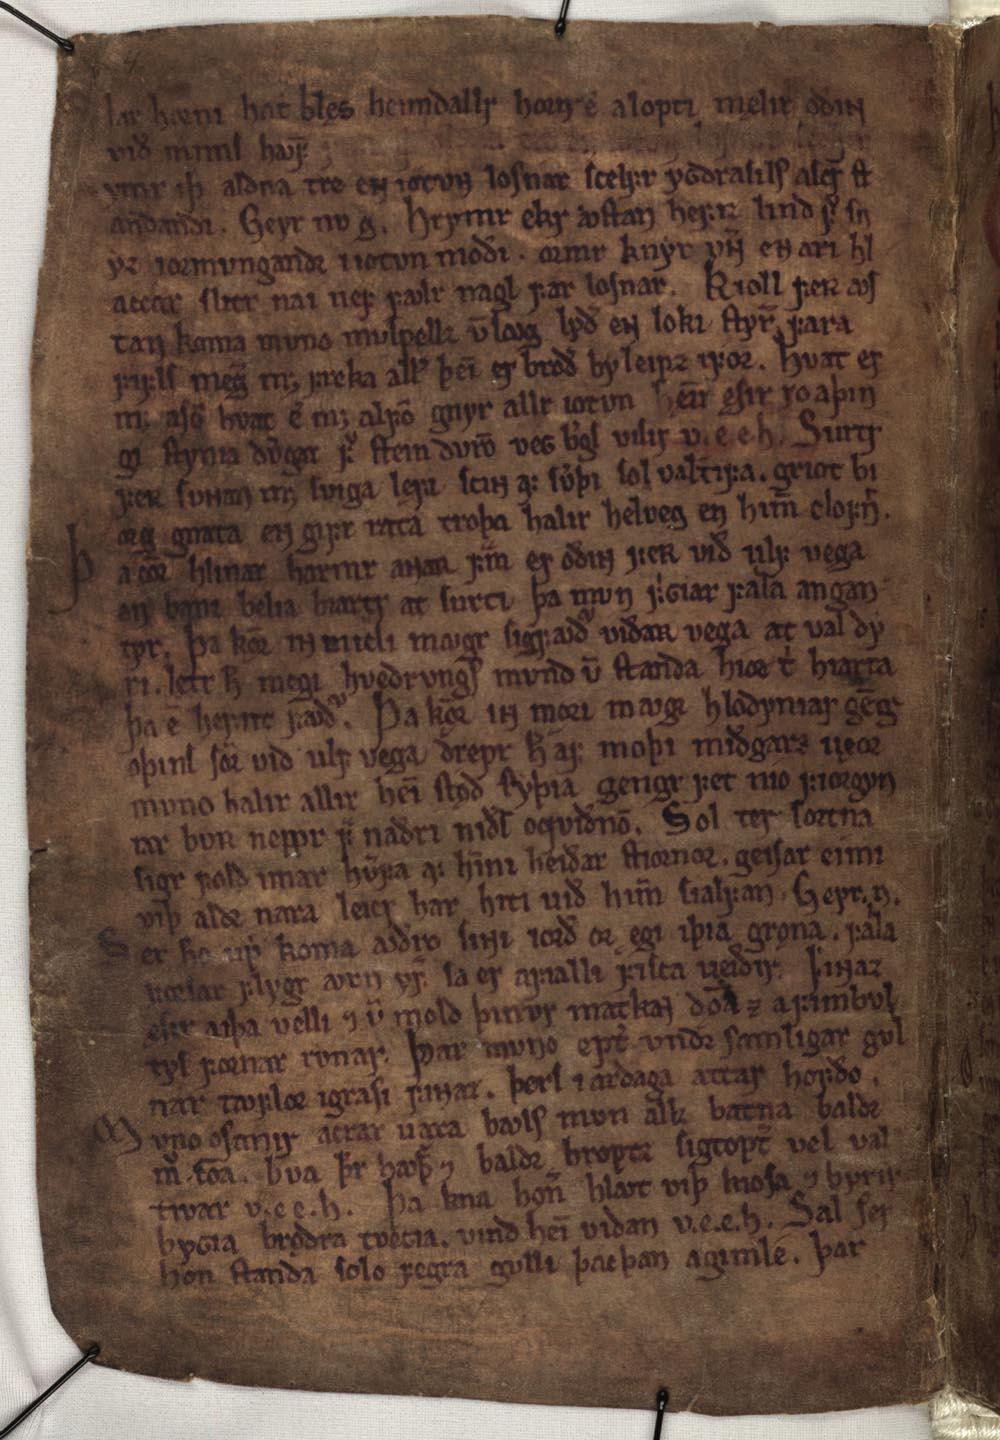 lar horni hát bles heimdallr horn é alopti melir oðin
við mimſ hꜹfꝰ
ymr iþ aldna tre en iotvn loſnar ſcelfr ygdraſilſ aſcr ſt
andandi. Geyr nv g. Hrymr ekr ꜹſtan hefiz lind f͛ ſn
yz iormvngandr iiotvn modi. ormr knyr vn̄ en ari hl
accar ſlitr nai nef fꜹlr naglfar loſnar. Kioll ferr ꜹſ
tan koma mvno mvſpellz v̄ lꜹg lyð en loki ſtyr͛ fara
fiflſ meg͛ m; freka all͛ þeī er brod͛ byleipz ifor. Hvat er
m; aſō hvat é m; alfō gnyr allr iotvn heīr eſir ro aþin
gi ſtynia dv͛gar f͛ ſtein dvrō veg b͛gſ viſir v.e.e.h. Surtr
fer ſunnan m; ſviga lefi ſcin af ſv͛þi ſol valtifa. griot bi
org gnata en gifr rata troþa halir helveg en him̄ clofn͛.
Þ a cōr hlinar harmr anar fr̄m er oðin ferr við ulf vega
en bani belia biartr at ſurti þa mvn f͛igiar fala angan
tyr. Þa kōr in micli mꜹgr ſigfꜹd͛ viðarr vega at val dy
ri. letr h̄ megi hvedrvngſ mvnd v̄ ſtanda hior t͛ hiarta
þa é hefnt fꜹd͛. Þa kōr in mori mꜹgr hlodyniar geng͛
oþinſ ſōr við ulf vega drepr h̄ af moþi midgarz ueor
mvno halir allir heī ſtod ryþia gengr fet nio fiorgyn
iar bvrr neppr f͛ nadri nidſ oqvidnō. Sol ter ſortna
ſigr fold imar hv͛fa af him̄i heidar ſtiornor. geiſar eimi
viþ aldr nara leicr har hiti uið him̄ ſialfan. Geyr. n.
S er hō up͛ koma aþro ſini iorð or egi iþia grǫna. falla
forſar flygr ꜹrn yf͛. ſa er afialli fiſca ueiðir. Finaz
eſir aiþa velli ⁊ v̄ mold þinvr matkan dōa ⁊ afimbvl
tyſ fornar rvnar. Þar mvno ept͛ vndr ſamligar gvl
nar tꜹflor igraſi finaz. þerſ i ardaga attar hofdo.
M vno oſanir acrar uaxa bꜹlſ mvn allz batna baldr
m͛ coa. bva þr hꜹþ͛ ⁊ baldr hroptz ſigtopt͛ vel val
tivar v.e.e.h. Þa kna hōn͛ hlꜹt viþ kioſa ⁊ byrir
bygia brǫdra tvegia. vind heī vidan v.e.e.h. Sal ſer
hon ſtanda ſolo fegra gvlli þacþan agimle. þar